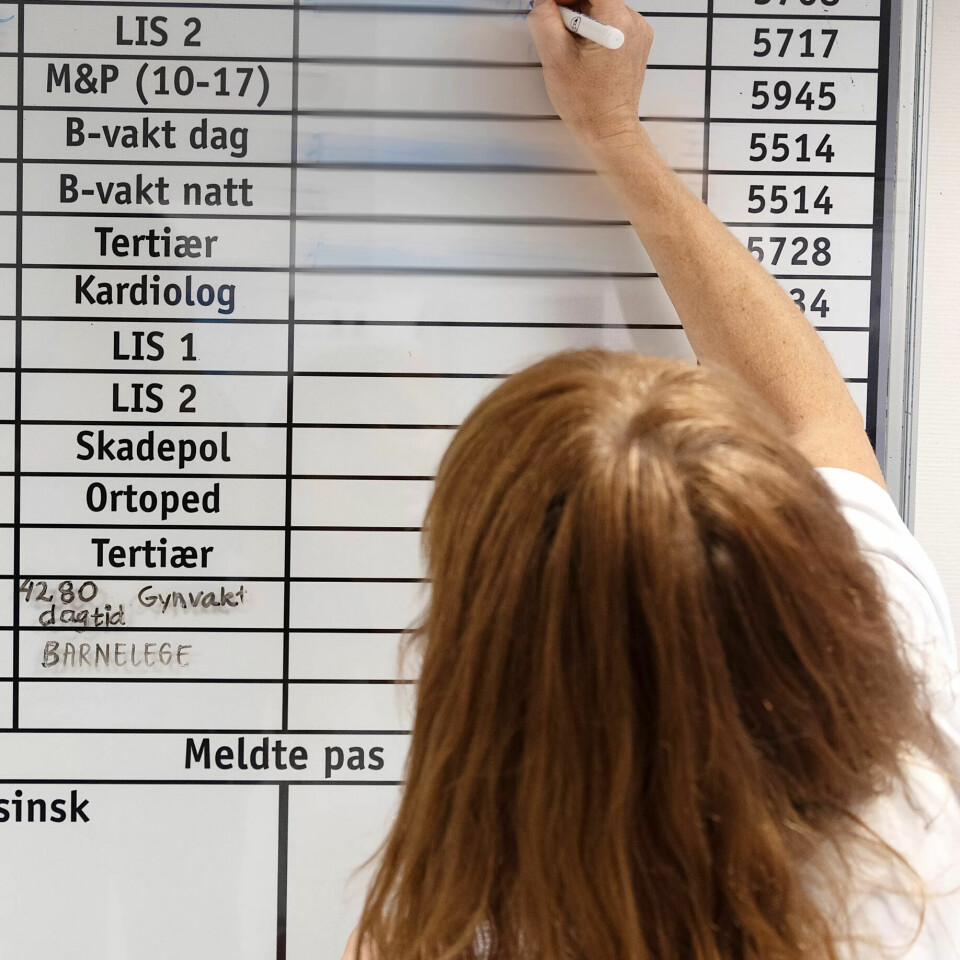 LIS 2 5717
M&P (10-17) 5945
B-vakt dag 5514
B-vakt natt 5514
Tertiær 5728
Kardiolog 34
LIS 1
LIS 2
Skadepol
Ortoped
Tertiær
4280 Gynvakt
dagtid
BARNELEGE
Meldte pas
sinsk